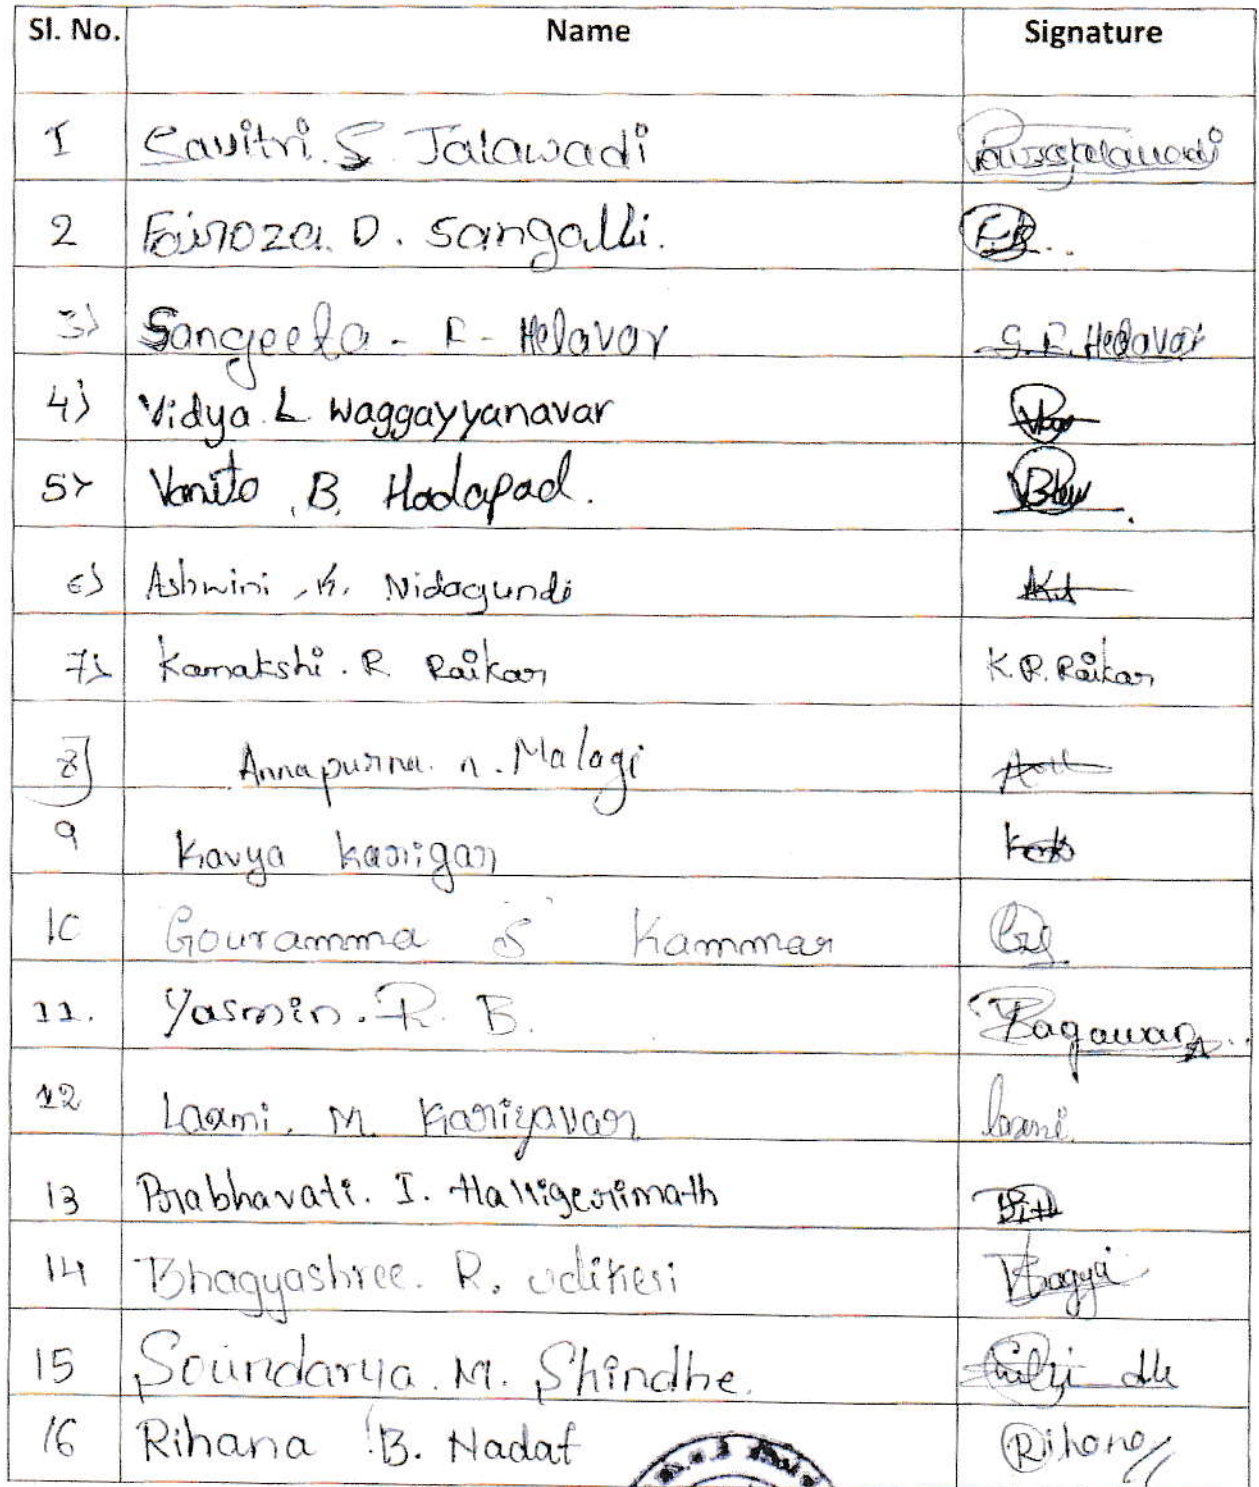 Sl. No. Name Signature
1 Savitri. S. Jalawadi
2 Fairoza. D. Sangalli.
3) Sangeeta - F - Helavar S. F. Helavar
4) Vidya L Waggayyanavar
5) Vanita . B. Hadapad.
6) Ashwini . K. Nidagundi
7) Kamakshi . R Raikar K. R. Raikar
8) Annapurna. n. Malagi
9 Kavya Kanigar
10 Gouramma S Kammar
11. Yasmin. R. B. Bagawan
12 Laxmi. M. Kariyavar laxmi
13 Prabhavati. I. Halligerimath
14 Bhagyashree. R. Udikeri Bhagya
15 Soundarya. M. Shindhe.
16 Rihana B. Nadaf Rihana